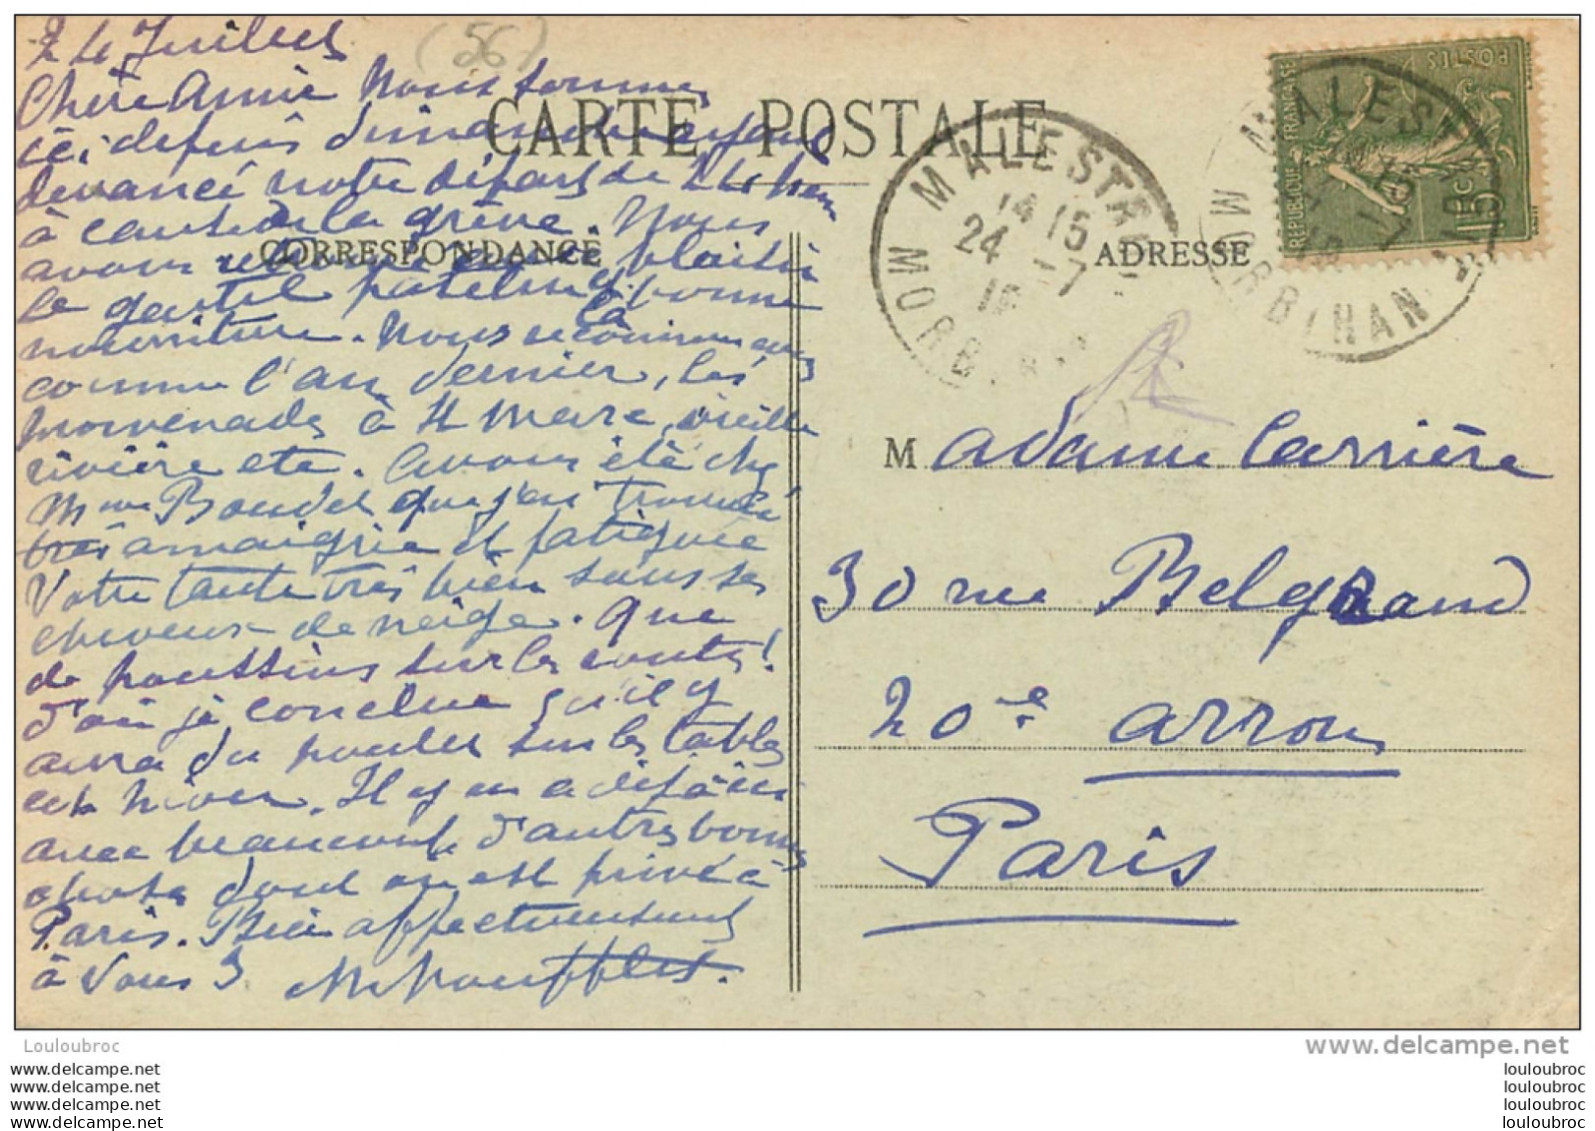 24 Juillet
(56)
Chère Amie Nous sommes
ici depuis dimanche ayant
devancé notre départ de 24 heures
à cause de la grève. Nous
avons retrouvé avec plaisir
le gentil patelin & la bonne
nourriture. Nous recommençons
comme l'an dernier, les
promenades à St Marc, vieille
rivière etc. Avons été chez
Mme Boudet que j'en trouvée
très amaigrie et fatiguée
Votre tante très bien sous ses
cheveux de neige. Que
de poussins sur les routes!
d'où je conclue qu'il y
aura du poulet sur les tables
cet hiver. Il y en a déjà ici
avec beaucoup d'autres bonnes
choses dont on est privé à
Paris. Bien affectueusement
à Vous 3
CARTE POSTALE
CORRESPONDANCE
ADRESSE
MALESTROIT
14 15
24 -7
MORBIHAN
MALESTROIT
MORBIHAN
REPUBLIQUE FRANÇAISE
POSTES
15c
Madame Carrière
30 rue Belgrand
20e arron
Paris
Louloubroc
www.delcampe.net
www.delcampe.net
www.delcampe.net
www.delcampe.net
www.delcampe.net
delcampe.net
louloubroc
louloubroc
louloubroc
louloubroc